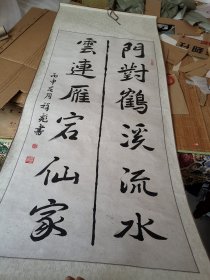 門對鶴溪流水
雲連雁宕仙家
丙申
書